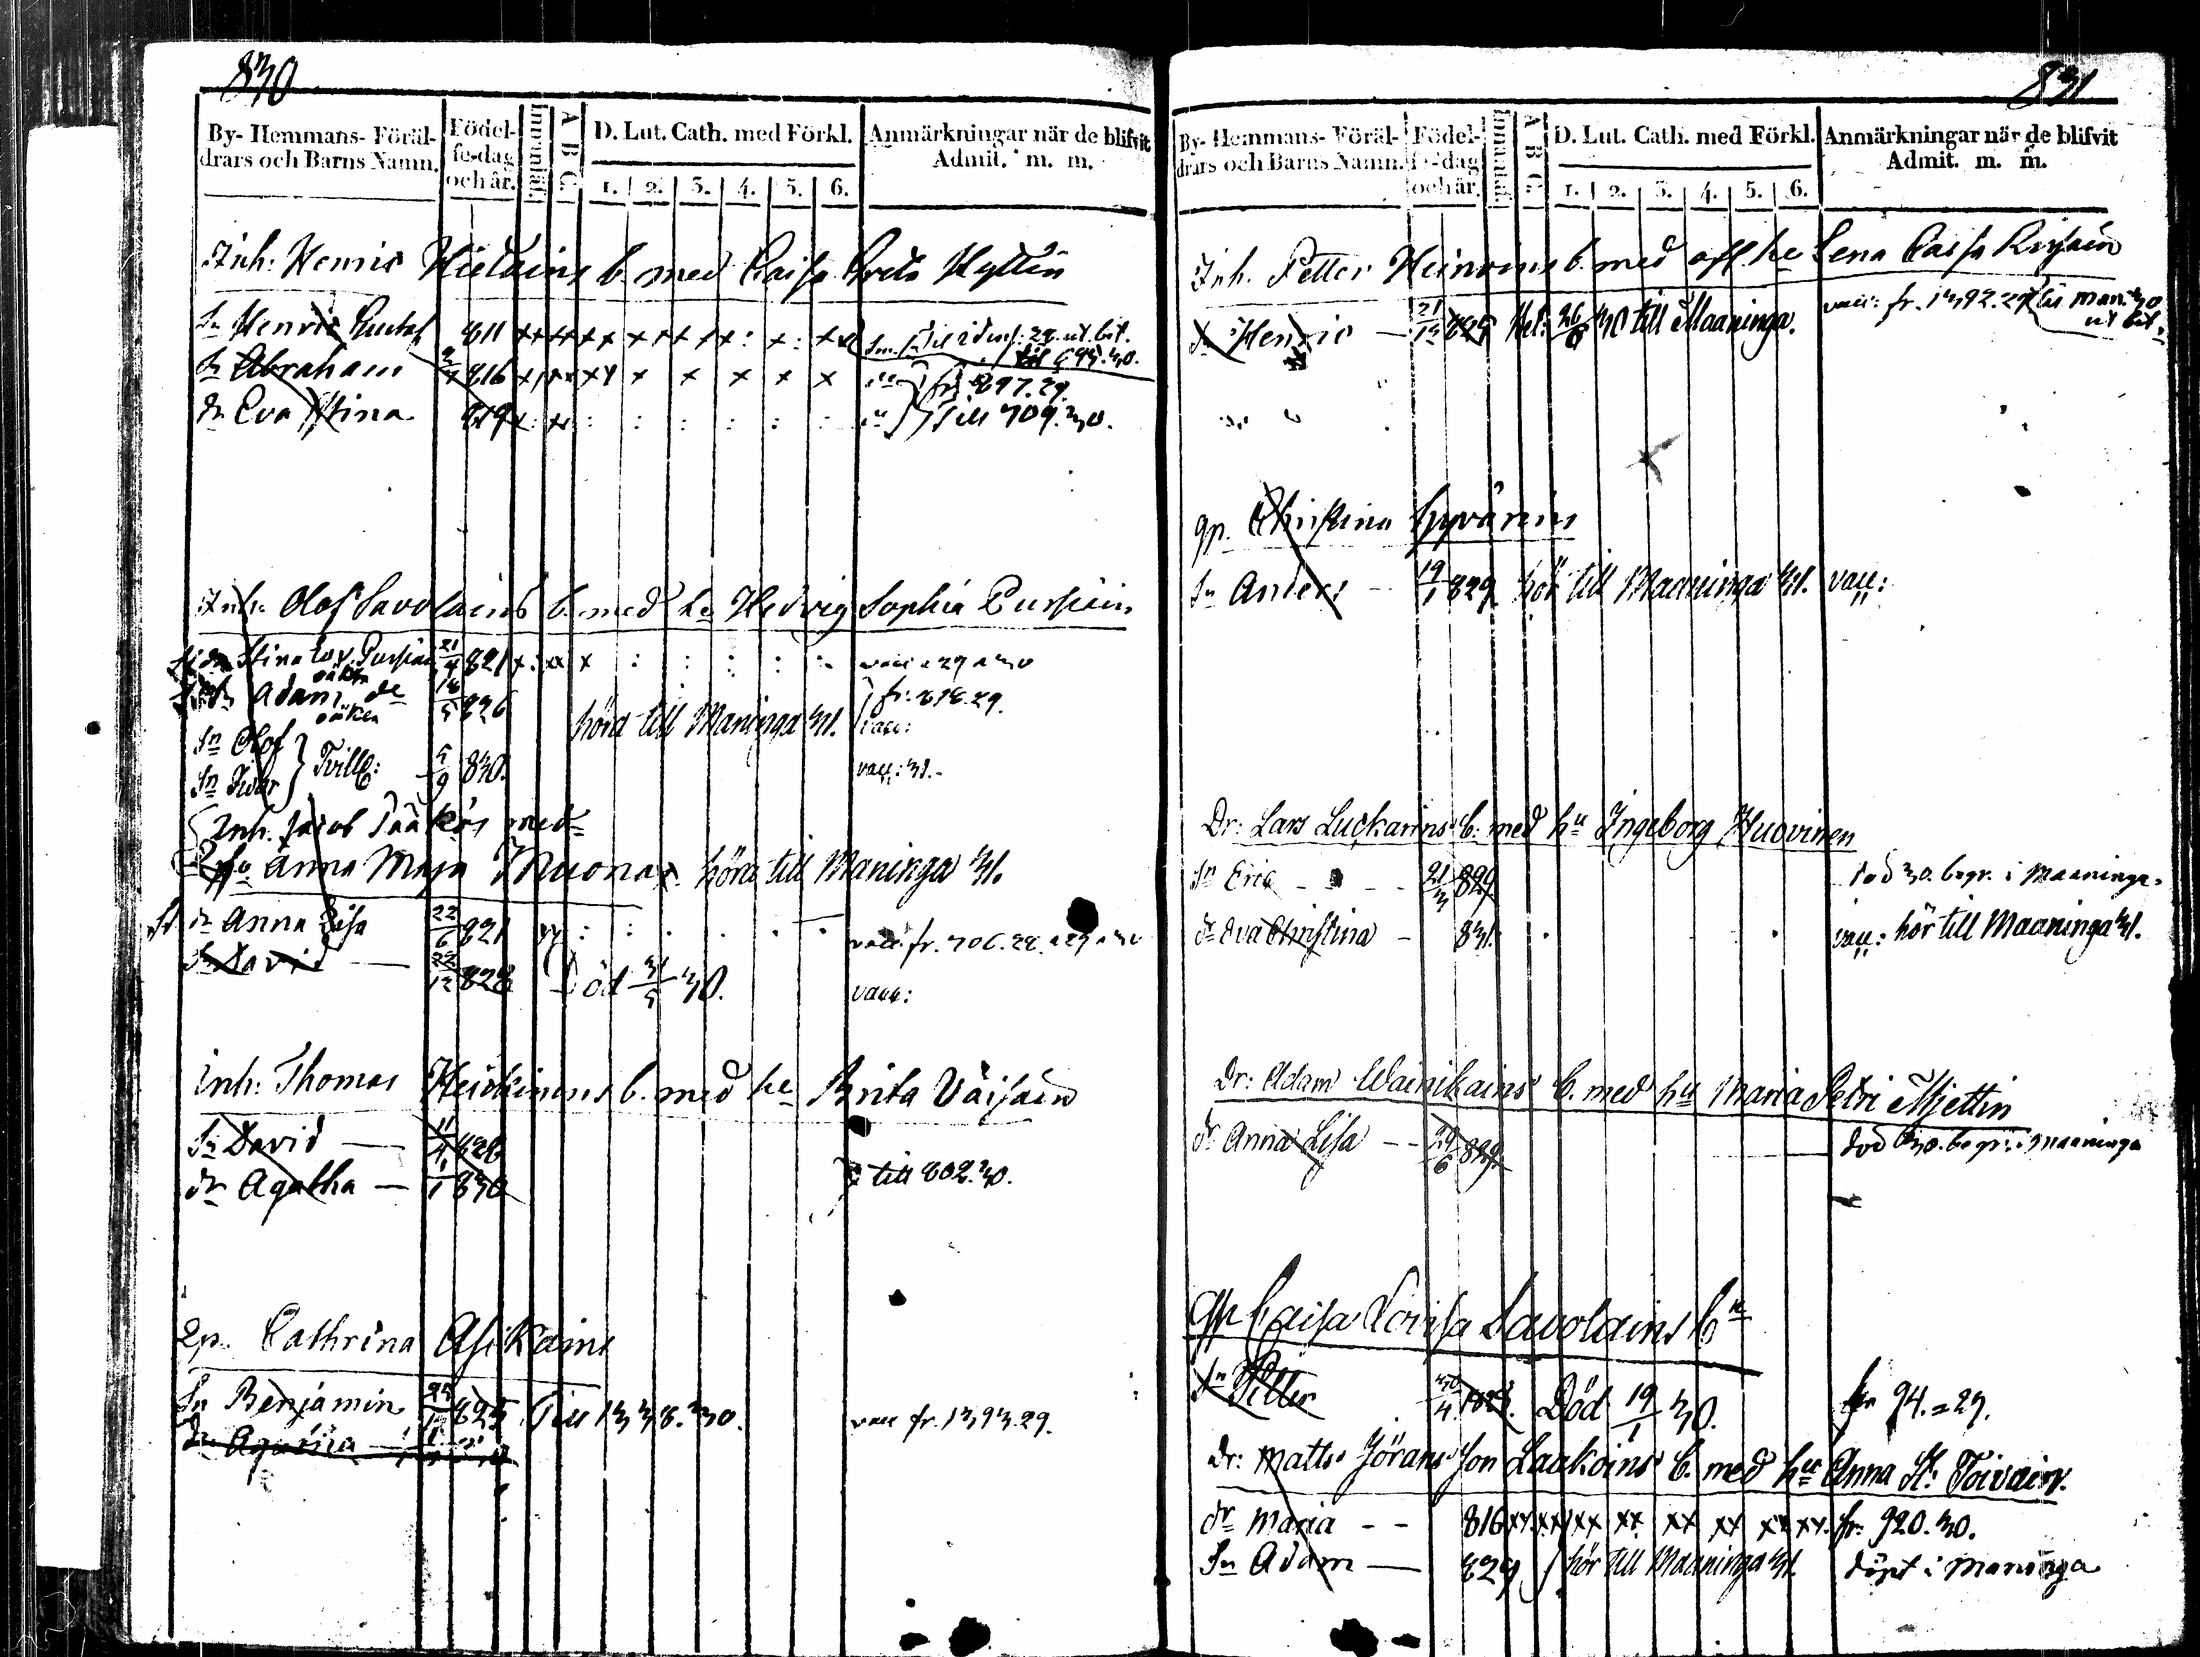 830
By- Hemmans- Föräl-
drars och Barns Namn.
Födel-
se-dag
och år.
Innanläs.
A B C.
D. Lut. Cath. med Förkl.
1. 2. 3. 4. 5. 6.
Anmärkningar när de blifvit
Admit. m. m.
Inh: Henric Hietains b. med Caisa Greta Hyttin
Sn Henric Gustaf 811
Sn Abraham 816 fr 897.29.
dr Eva Stina 819 till 709.30.
Inh: Olof Savolains b. med hu Hedvig Sophia Pursiain
Stina Lov. Pursiain 21/4 821 vacc 29 30
oäkta
Adam de 18/5 826 hörd till Maninga 31. fr: 818.29.
oäkta vacc:
Sn Olof
Sn Ivar } Tvill: 5/9 830. vacc: 31.
Inh. Jacob Pääkös med
Anna Maja Muona höra till Maninga 31.
dr Anna Lisa 22/6 821 vacc. fr. 706.28. 29 30
Sn David — 22/12 828 Död 31/5 30. vacc:
Inh: Thomas Heickinens b. med hu Brita Väisäin
Sn David — 11/4 828
dr Agatha — 1/1 830 till 802.30.
Qp. Cathrina Asikains
Sn Benjamin 25/12 825 Till 1338.30. vacc fr. 1393.29.
831
By- Hemmans- Föräl-
drars och Barns Namn.
Födel-
se-dag
och år.
Innanläs.
A B C.
D. Lut. Cath. med Förkl.
1. 2. 3. 4. 5. 6.
Anmärkningar när de blifvit
Admit. m. m.
Inh. Petter Heinoins b. med afl. hu Lena Caisa Rissain
Sn Henric — 21/12 825 30 till Maaninga. vacc: fr. 1392.29 till Man. 30
ut bet.
qp. Christina Hyvärins
Sn Anders — 19/1 829 hör till Maaninga 31. vacc:
Dr: Lars Luckarins b: med hu Ingeborg Huovinen
Sn Eric - - - 21/3 829 död 30. begr. i Maaninga.
dr Eva Christina - 831. vacc: hör till Maaninga 31.
Dr: Adam Wainikains b. med hu Maria Petri Mjettin
dr Anna Lisa - - 29/6 829. död 30. begr. i Maaninga
qp Caisa Lovisa Savolains bn
Sn Petter 30/4 1828. Död 19/1 30. fr 94. 29.
Dr: Matts Jöransson Laakoins b. med hu Anna St: Toivain.
dr Maria - - 816 xx xx xx xx xx xx xx xx. fr. 920.30.
Sn Adam — 829 hör till Maaninga 31. döpt i Maninga